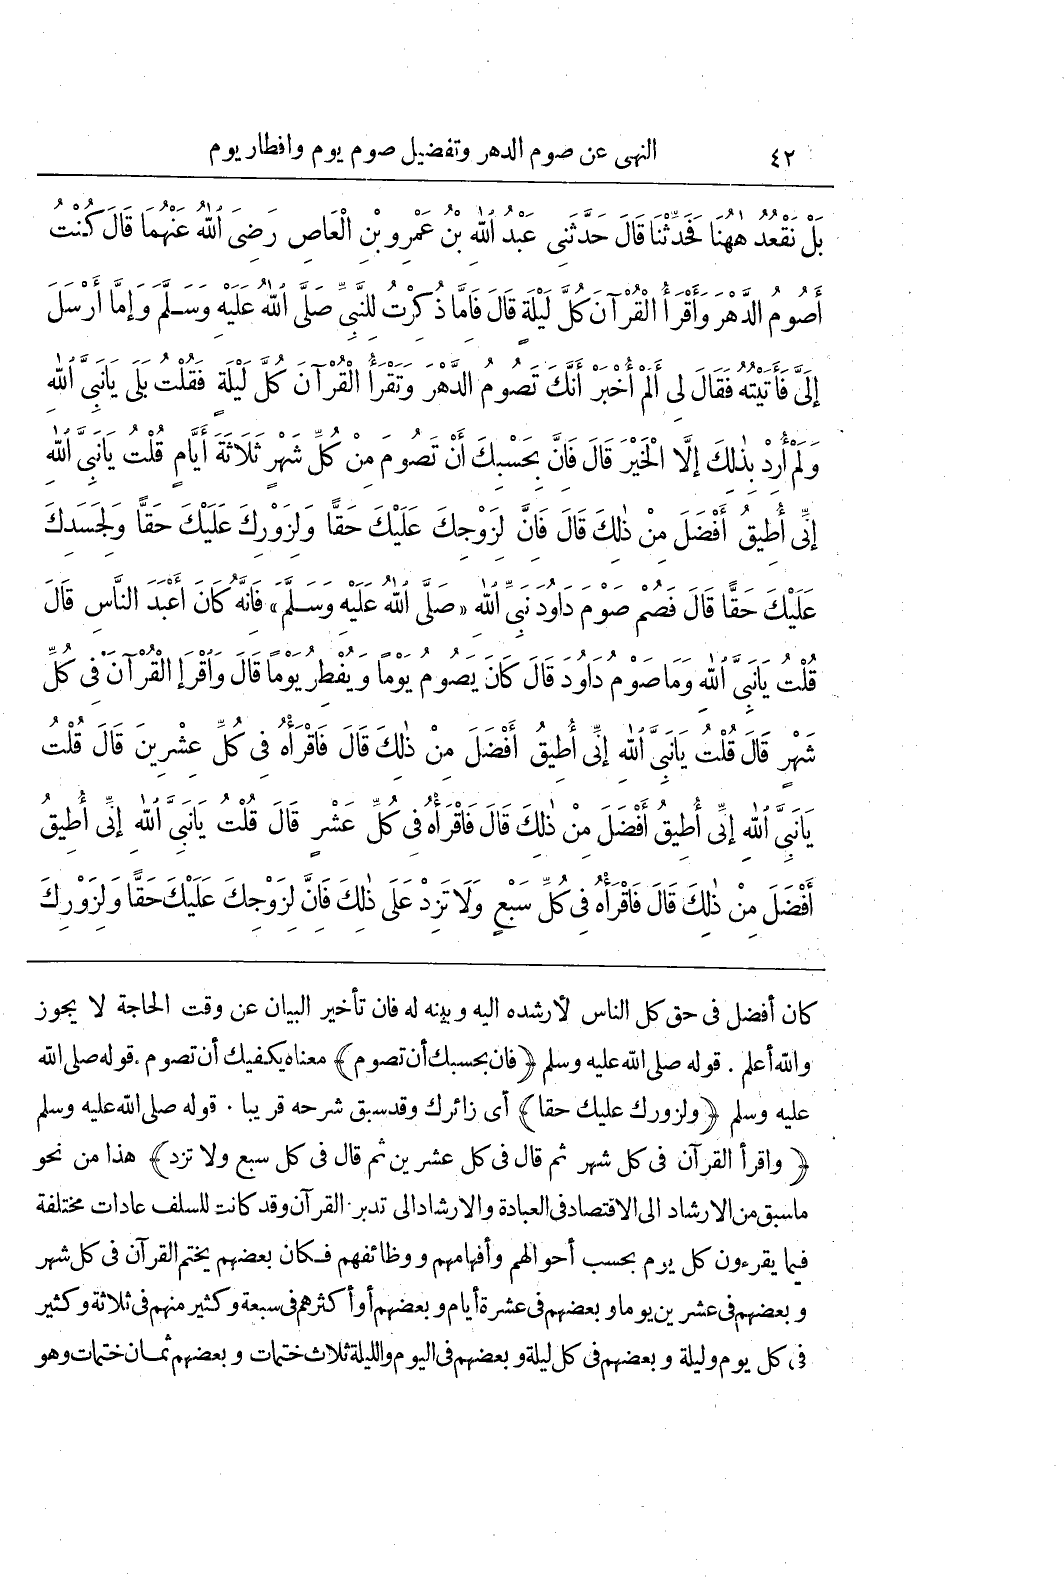 ٤٢ النهى عن صوم الدهر وتفضيل صوم يوم وافطار يوم
بَلْ نَقْعُدُ هٰهُنَا فَحَدِّثْنَا قَالَ حَدَّثَنِى عَبْدُ اللّٰهِ بْنُ عَمْرِو بْنِ الْعَاصِ رَضِىَ اللّٰهُ عَنْهُمَا قَالَ كُنْتُ
أَصُومُ الدَّهْرَ وَأَقْرَأُ الْقُرْآنَ كُلَّ لَيْلَةٍ قَالَ فَامَّا ذُكِرْتُ لِلنَّبِىِّ صَلَّى اللّٰهُ عَلَيْهِ وَسَلَّمَ وَإِمَّا أَرْسَلَ
إِلَىَّ فَأَتَيْتُهُ فَقَالَ لِى أَلَمْ أُخْبَرْ أَنَّكَ تَصُومُ الدَّهْرَ وَتَقْرَأُ الْقُرْآنَ كُلَّ لَيْلَةٍ فَقُلْتُ بَلَى يَانَبِىَّ اللّٰهِ
وَلَمْ أُرِدْ بِذٰلِكَ إِلَّا الْخَيْرَ قَالَ فَانَّ بِحَسْبِكَ أَنْ تَصُومَ مِنْ كُلِّ شَهْرٍ ثَلَاثَةَ أَيَّامٍ قُلْتُ يَانَبِىَّ اللّٰهِ
إِنِّى أُطِيقُ أَفْضَلَ مِنْ ذٰلِكَ قَالَ فَانَّ لِزَوْجِكَ عَلَيْكَ حَقًّا وَلِزَوْرِكَ عَلَيْكَ حَقًّا وَلِجَسَدِكَ
عَلَيْكَ حَقًّا قَالَ فَصُمْ صَوْمَ دَاوُدَ نَبِىِّ اللّٰهِ «صَلَّى اللّٰهُ عَلَيْهِ وَسَلَّمَ» فَانَّهُ كَانَ أَعْبَدَ النَّاسِ قَالَ
قُلْتُ يَانَبِىَّ اللّٰهِ وَمَا صَوْمُ دَاوُدَ قَالَ كَانَ يَصُومُ يَوْمًا وَيُفْطِرُ يَوْمًا قَالَ وَاقْرَإِ الْقُرْآنَ فِى كُلِّ
شَهْرٍ قَالَ قُلْتُ يَانَبِىَّ اللّٰهِ إِنِّى أُطِيقُ أَفْضَلَ مِنْ ذٰلِكَ قَالَ فَاقْرَأْهُ فِى كُلِّ عِشْرِينَ قَالَ قُلْتُ
يَانَبِىَّ اللّٰهِ إِنِّى أُطِيقُ أَفْضَلَ مِنْ ذٰلِكَ قَالَ فَاقْرَأْهُ فِى كُلِّ عَشْرٍ قَالَ قُلْتُ يَانَبِىَّ اللّٰهِ إِنِّى أُطِيقُ
أَفْضَلَ مِنْ ذٰلِكَ قَالَ فَاقْرَأْهُ فِى كُلِّ سَبْعٍ وَلَا تَزِدْ عَلَى ذٰلِكَ فَانَّ لِزَوْجِكَ عَلَيْكَ حَقًّا وَلِزَوْرِكَ
كان أفضل فى حق كل الناس لأرشده اليه وبينه له فان تأخير البيان عن وقت الحاجة لا يجوز
والله أعلم . قوله صلى الله عليه وسلم ﴿فان بحسبك أن تصوم﴾ معناه يكفيك أن تصوم . قوله صلى الله
عليه وسلم ﴿ولزورك عليك حقا﴾ أى زائرك وقد سبق شرحه قريبا . قوله صلى الله عليه وسلم
﴿واقرأ القرآن فى كل شهر ثم قال فى كل عشرين ثم قال فى كل سبع ولا تزد﴾ هذا من نحو
ماسبق من الارشاد الى الاقتصاد فى العبادة والارشاد الى تدبر القرآن وقد كانت للسلف عادات مختلفة
فيما يقرءون كل يوم بحسب أحوالهم وأفهامهم ووظائفهم فكان بعضهم يختم القرآن فى كل شهر
وبعضهم فى عشرين يوما وبعضهم فى عشرة أيام وبعضهم أو أكثرهم فى سبعة وكثير منهم فى ثلاثة وكثير
فى كل يوم وليلة وبعضهم فى كل ليلة وبعضهم فى اليوم والليلة ثلاث ختمات وبعضهم ثمان ختمات وهو